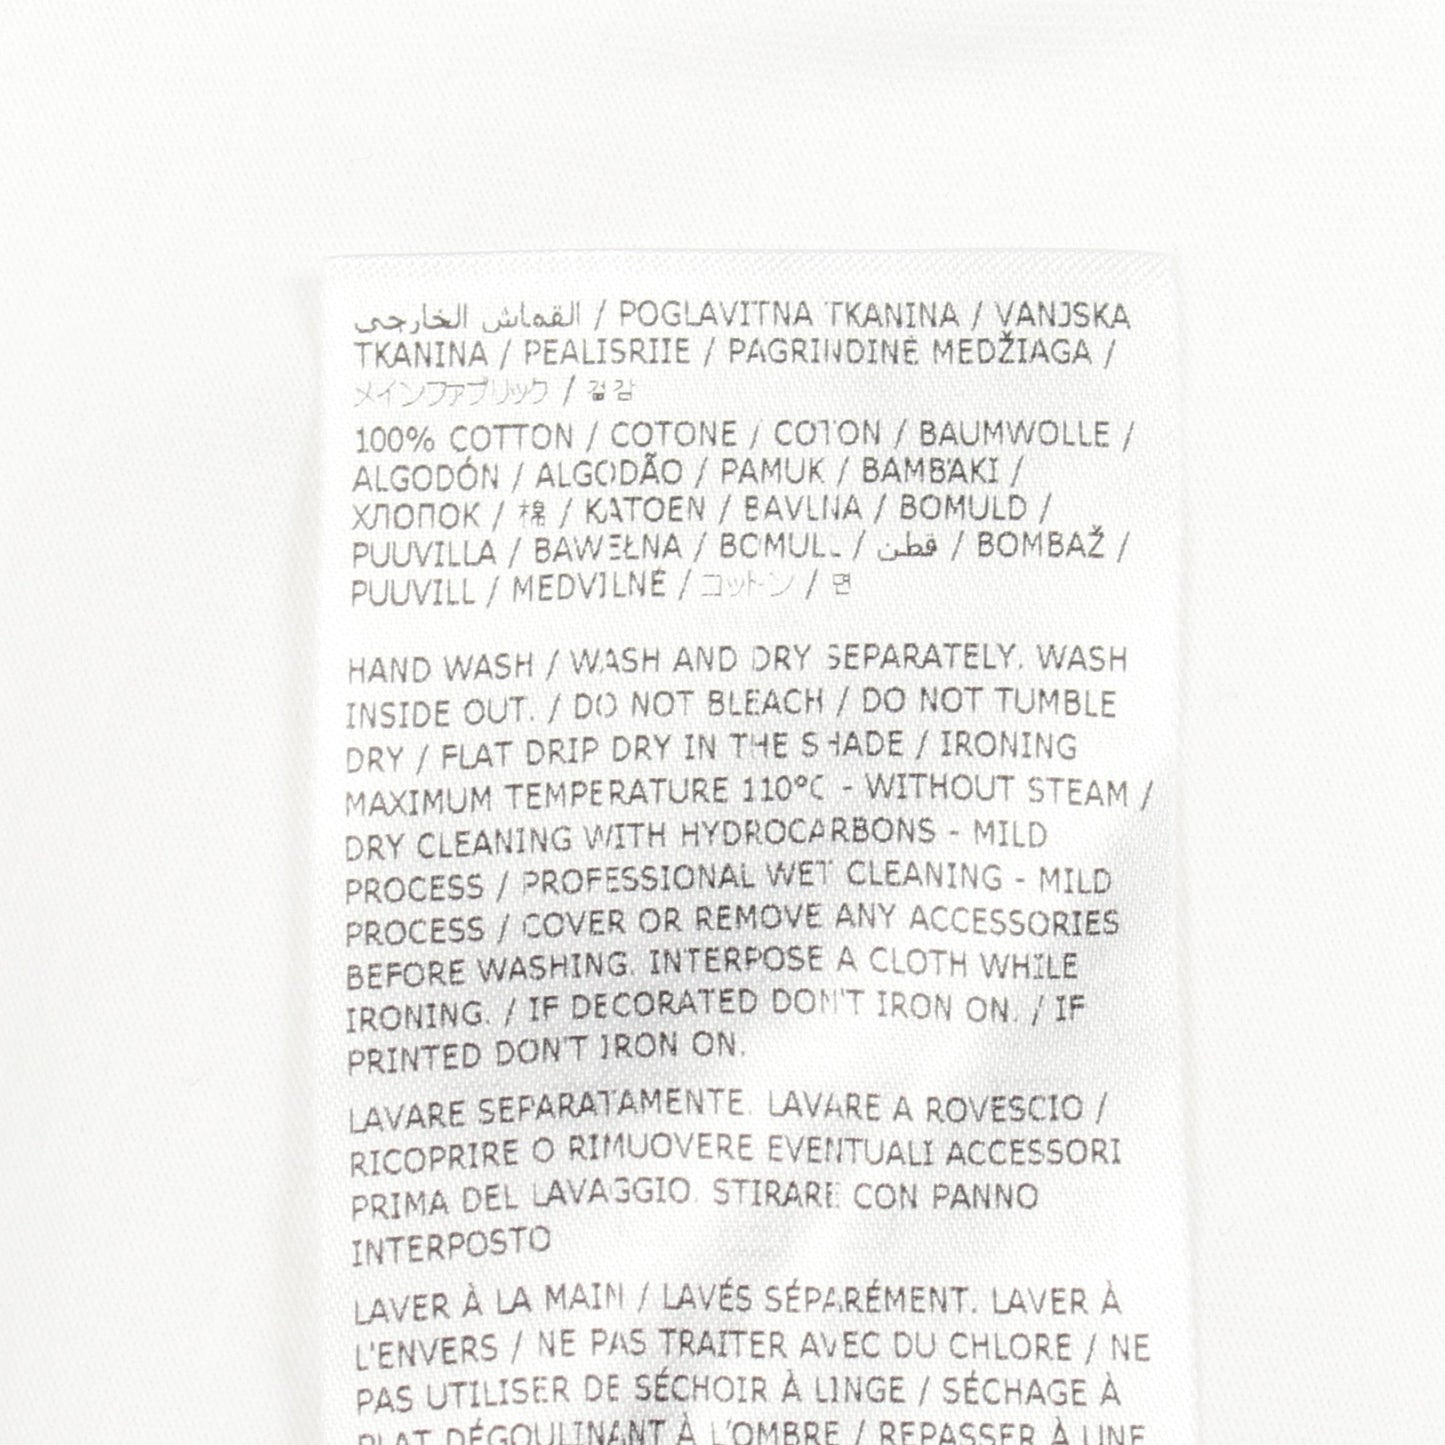 القماش الخارجي / POGLAVITNA TKANINA / VANJSKA
TKANINA / PEALISRIIE / PAGRINDINĖ MEDŽIAGA /
メインファブリック / 겉감
100% COTTON / COTONE / COTON / BAUMWOLLE /
ALGODÓN / ALGODÃO / PAMUK / BAMBAKI /
ХЛОПОК / 棉 / KATOEN / BAVLNA / BOMULD /
PUUVILLA / BAWEŁNA / BOMULL / قطن / BOMBAŽ /
PUUVILL / MEDVILNĖ / コットン / 면
HAND WASH / WASH AND DRY SEPARATELY. WASH
INSIDE OUT. / DO NOT BLEACH / DO NOT TUMBLE
DRY / FLAT DRIP DRY IN THE SHADE / IRONING
MAXIMUM TEMPERATURE 110°C - WITHOUT STEAM /
DRY CLEANING WITH HYDROCARBONS - MILD
PROCESS / PROFESSIONAL WET CLEANING - MILD
PROCESS / COVER OR REMOVE ANY ACCESSORIES
BEFORE WASHING. INTERPOSE A CLOTH WHILE
IRONING. / IF DECORATED DON'T IRON ON. / IF
PRINTED DON'T IRON ON.
LAVARE SEPARATAMENTE. LAVARE A ROVESCIO /
RICOPRIRE O RIMUOVERE EVENTUALI ACCESSORI
PRIMA DEL LAVAGGIO. STIRARE CON PANNO
INTERPOSTO
LAVER À LA MAIN / LAVÉS SÉPARÉMENT. LAVER À
L'ENVERS / NE PAS TRAITER AVEC DU CHLORE / NE
PAS UTILISER DE SÉCHOIR À LINGE / SÉCHAGE À
PLAT DÉGOULINANT À L'OMBRE / REPASSER À UNE